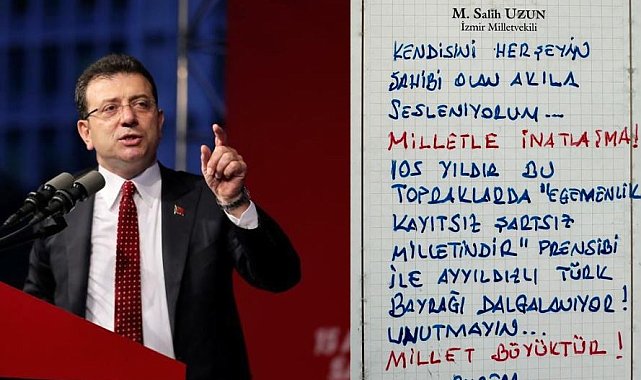 M. Salih UZUN
İzmir Milletvekili
KENDİSİNİ HERŞEYİN
SAHİBİ OLAN AKILA
SESLENİYORUM...
MİLLETLE İNATLAŞMA!
105 YILDIR BU
TOPRAKLARDA "EGEMENLİK
KAYITSIZ ŞARTSIZ
MİLLETİNDİR" PRENSİBİ
İLE AYYILDIZLI TÜRK
BAYRAĞI DALGALANIYOR!
UNUTMAYIN...
MİLLET BÜYÜKTÜR!